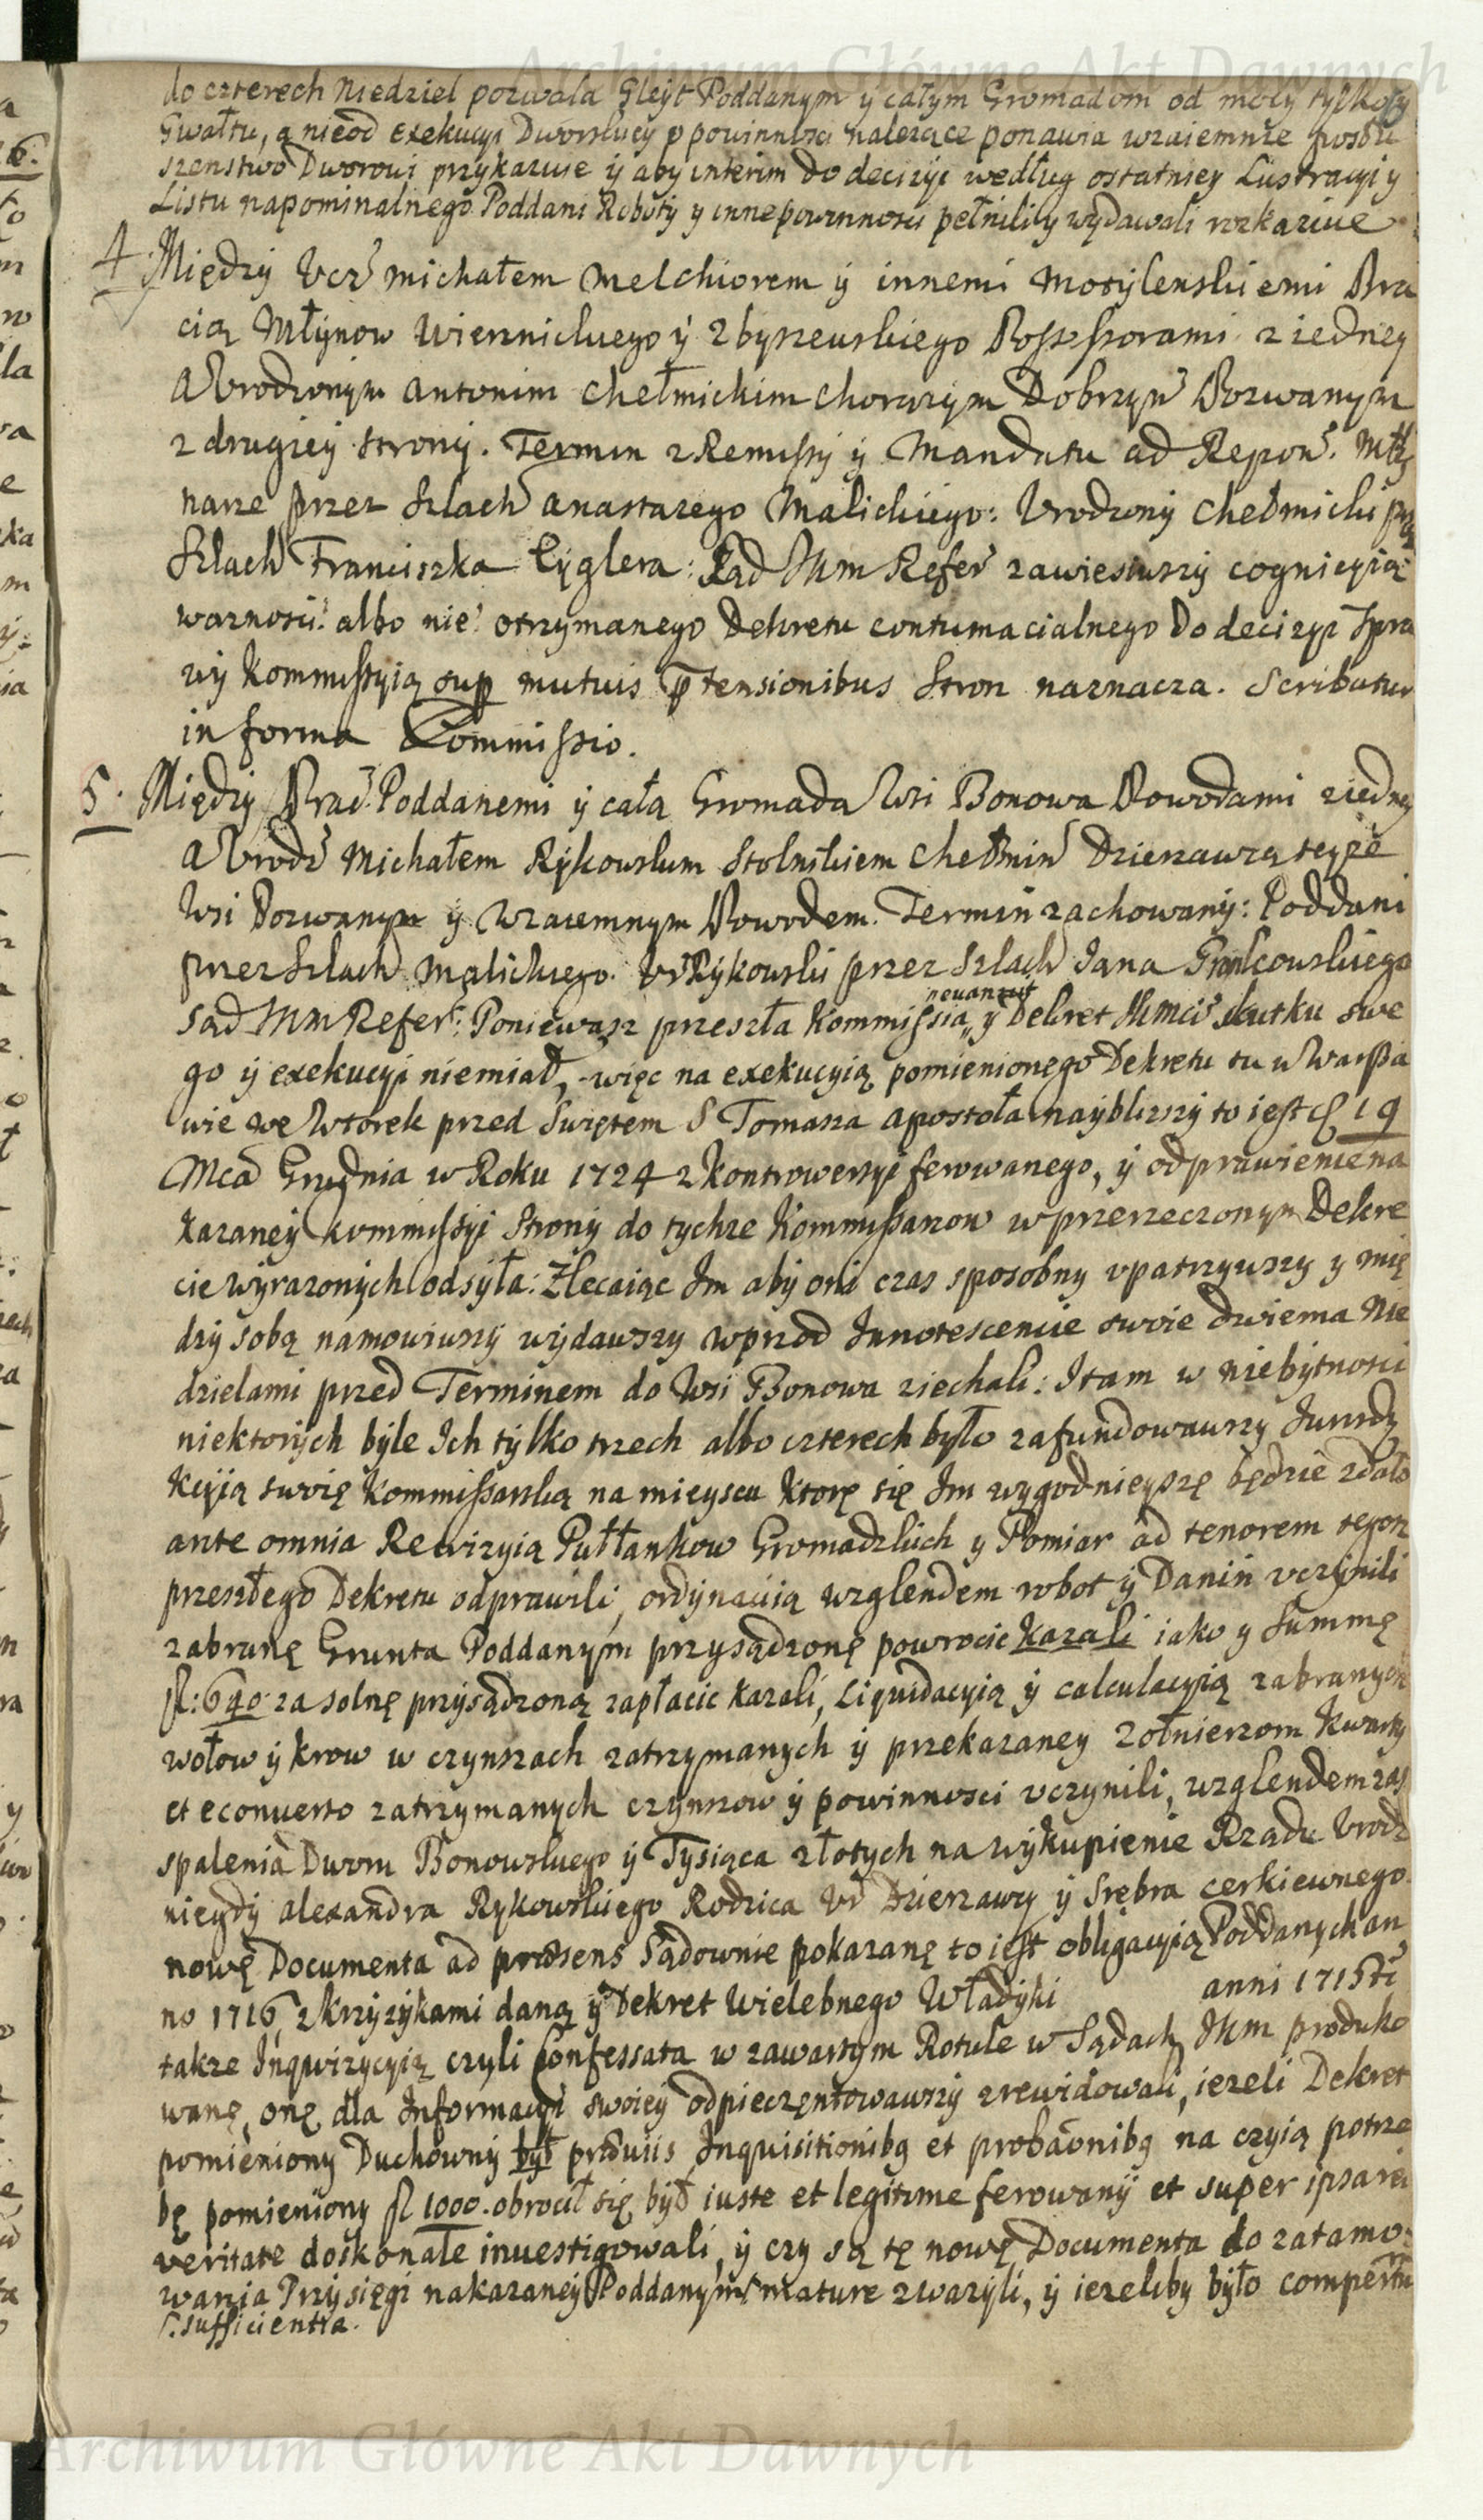 Archiwum Główne Akt Dawnych
do czterech Niedziel pozwala Gleyt Poddanym y całym Gromadom od mocy tylko y
Gwałtu, a nieod Exekucyi Dworskiey o powinnosci nalezące ponawia wzaiemnie posłu
szenstwo Dworowi przykazuie ÿ aby interim do decizyi według ostatniey Lustracyi y
Listu napominalnego Poddani Roboty y inne powinnosci pełnili y wydawali rozkazuie
4. Między Vcz Michałem Melchiorem ÿ innemi Motylenskiemi Bra
cią Młynow Wiernickiego ÿ Zbyszewskiego Possessorami z iedney
A Vrodzonym Antonim Chełmickim Chorązym Dobrzyn Pozwanym
z drugiey strony. Termin z Remissy ÿ Mandatu ad Repon. Mły
narze przez Szlach Anastazego Malickiego: Vrodzony Chełmicki prz
Szlach Franciszka Cyglera: Sąd JKm Refer zawiesiwszy cognicyią
waznosci albo nie otrzymanego Dekretu contumacialnego do decizyi Spra
wy Kommissyią sup mutuis ptensionibus Stron naznacza. Scribatur
in forma Commissio.
5. Między Prac. Poddanemi ÿ całą Gromadą Wsi Bonowa Powodami ziedney
A Vrodz Michałem Rykowskim Stolnikiem Chełmin Dzierzawcą teyze
Wsi Pozwanym ÿ Wzaiemnym Powodem. Termin zachowany: Poddani
przez Szlach Malickiego. Vr Rykowski przez Szlach Jana
Sąd JKm Refer: Poniewasz przeszła Kommissia ÿ Dekret JKmci skutku swe
go ÿ exekucyi niemiał, więc na exekucyią pomienionego Dekretu tu w Warsza
wie we Wtorek przed Swiętem S Tomasza Apostoła nayblizszy to iest d 19
Mca Grudnia w Roku 1724 z kontrowersyi ferowanego, ÿ odprawienie na
kazaney kommissyi Strony do tychze Kommissarzow w przerzeczonym Dekre
cie wyrazonych odsyła: Zlecaiąc Im aby oni czas sposobny vpatrzywszy y mię
dzy sobą namowiwszy wydawszy wprzod Innotescencie swoie dwiema Nie
dzielami przed Terminem do Wsi Bonowa ziechali: I tam w niebytnosci
niektorych byle Ich tylko trzech albo czterech było zafundowawszy Jurisdy
kcyią swoię Kommissarską na mieyscu ktore się Im wygodnieyszę będzie zdało
ante omnia Rewizyią Pułłankow Gromadzkich y Pomiar ad tenorem tegoz
przeszłego Dekretu odprawili, ordynacią wzglendem robot ÿ Danin vczynili
zabranę Grunta Poddanym przysądzonę powrocic kazali iako y Summę
fl: 640 za solnę przysądzoną zapłacic kazali, Liquidacyią ÿ calculacyią zabranych
wołow ÿ krow w czynszach zatrzymanych ÿ przekazaney Zołnierzom Kwarty
et econuerso zatrzymanych czynszow ÿ powinnosci vczynili, wzglendem zas
spalenia Dworu Bonowskiego ÿ Tysiąca złotych na wykupienie Rządu Vrodz
niegdy Alexandra Rykowskiego Rodzica Vr Dzierzawcy ÿ Srebra cerkiewnego
nowę Documenta ad præsens Sądownie pokazanę to iest obligacyią Poddanych an
no 1716 z krzyzykami daną ÿ Dekret Wielebnego Władyki anni 1715ti
takze Inqwizycyią czyli Confessata w zawartym Rotule w Sądach JKm produko
wanę, onę dla Informacyi swoiey odpieczętowawszy zrewidowali, iezeli Dekret
pomieniony Duchowny był præuiis Inquisitionibq et probaonibq na czyią potrze
bę pomieniony fl 1000. obrocił się był iuste et legitime ferowany et super ipsa rei
veritate doskonałe inuestigowali, ÿ czy są tę nowę Documenta do zatamo
wania Przysięgi nakazaney Poddanym mature zwazyli, ÿ iezeliby było compertu
sufficientia.
Archiwum Główne Akt Dawnych